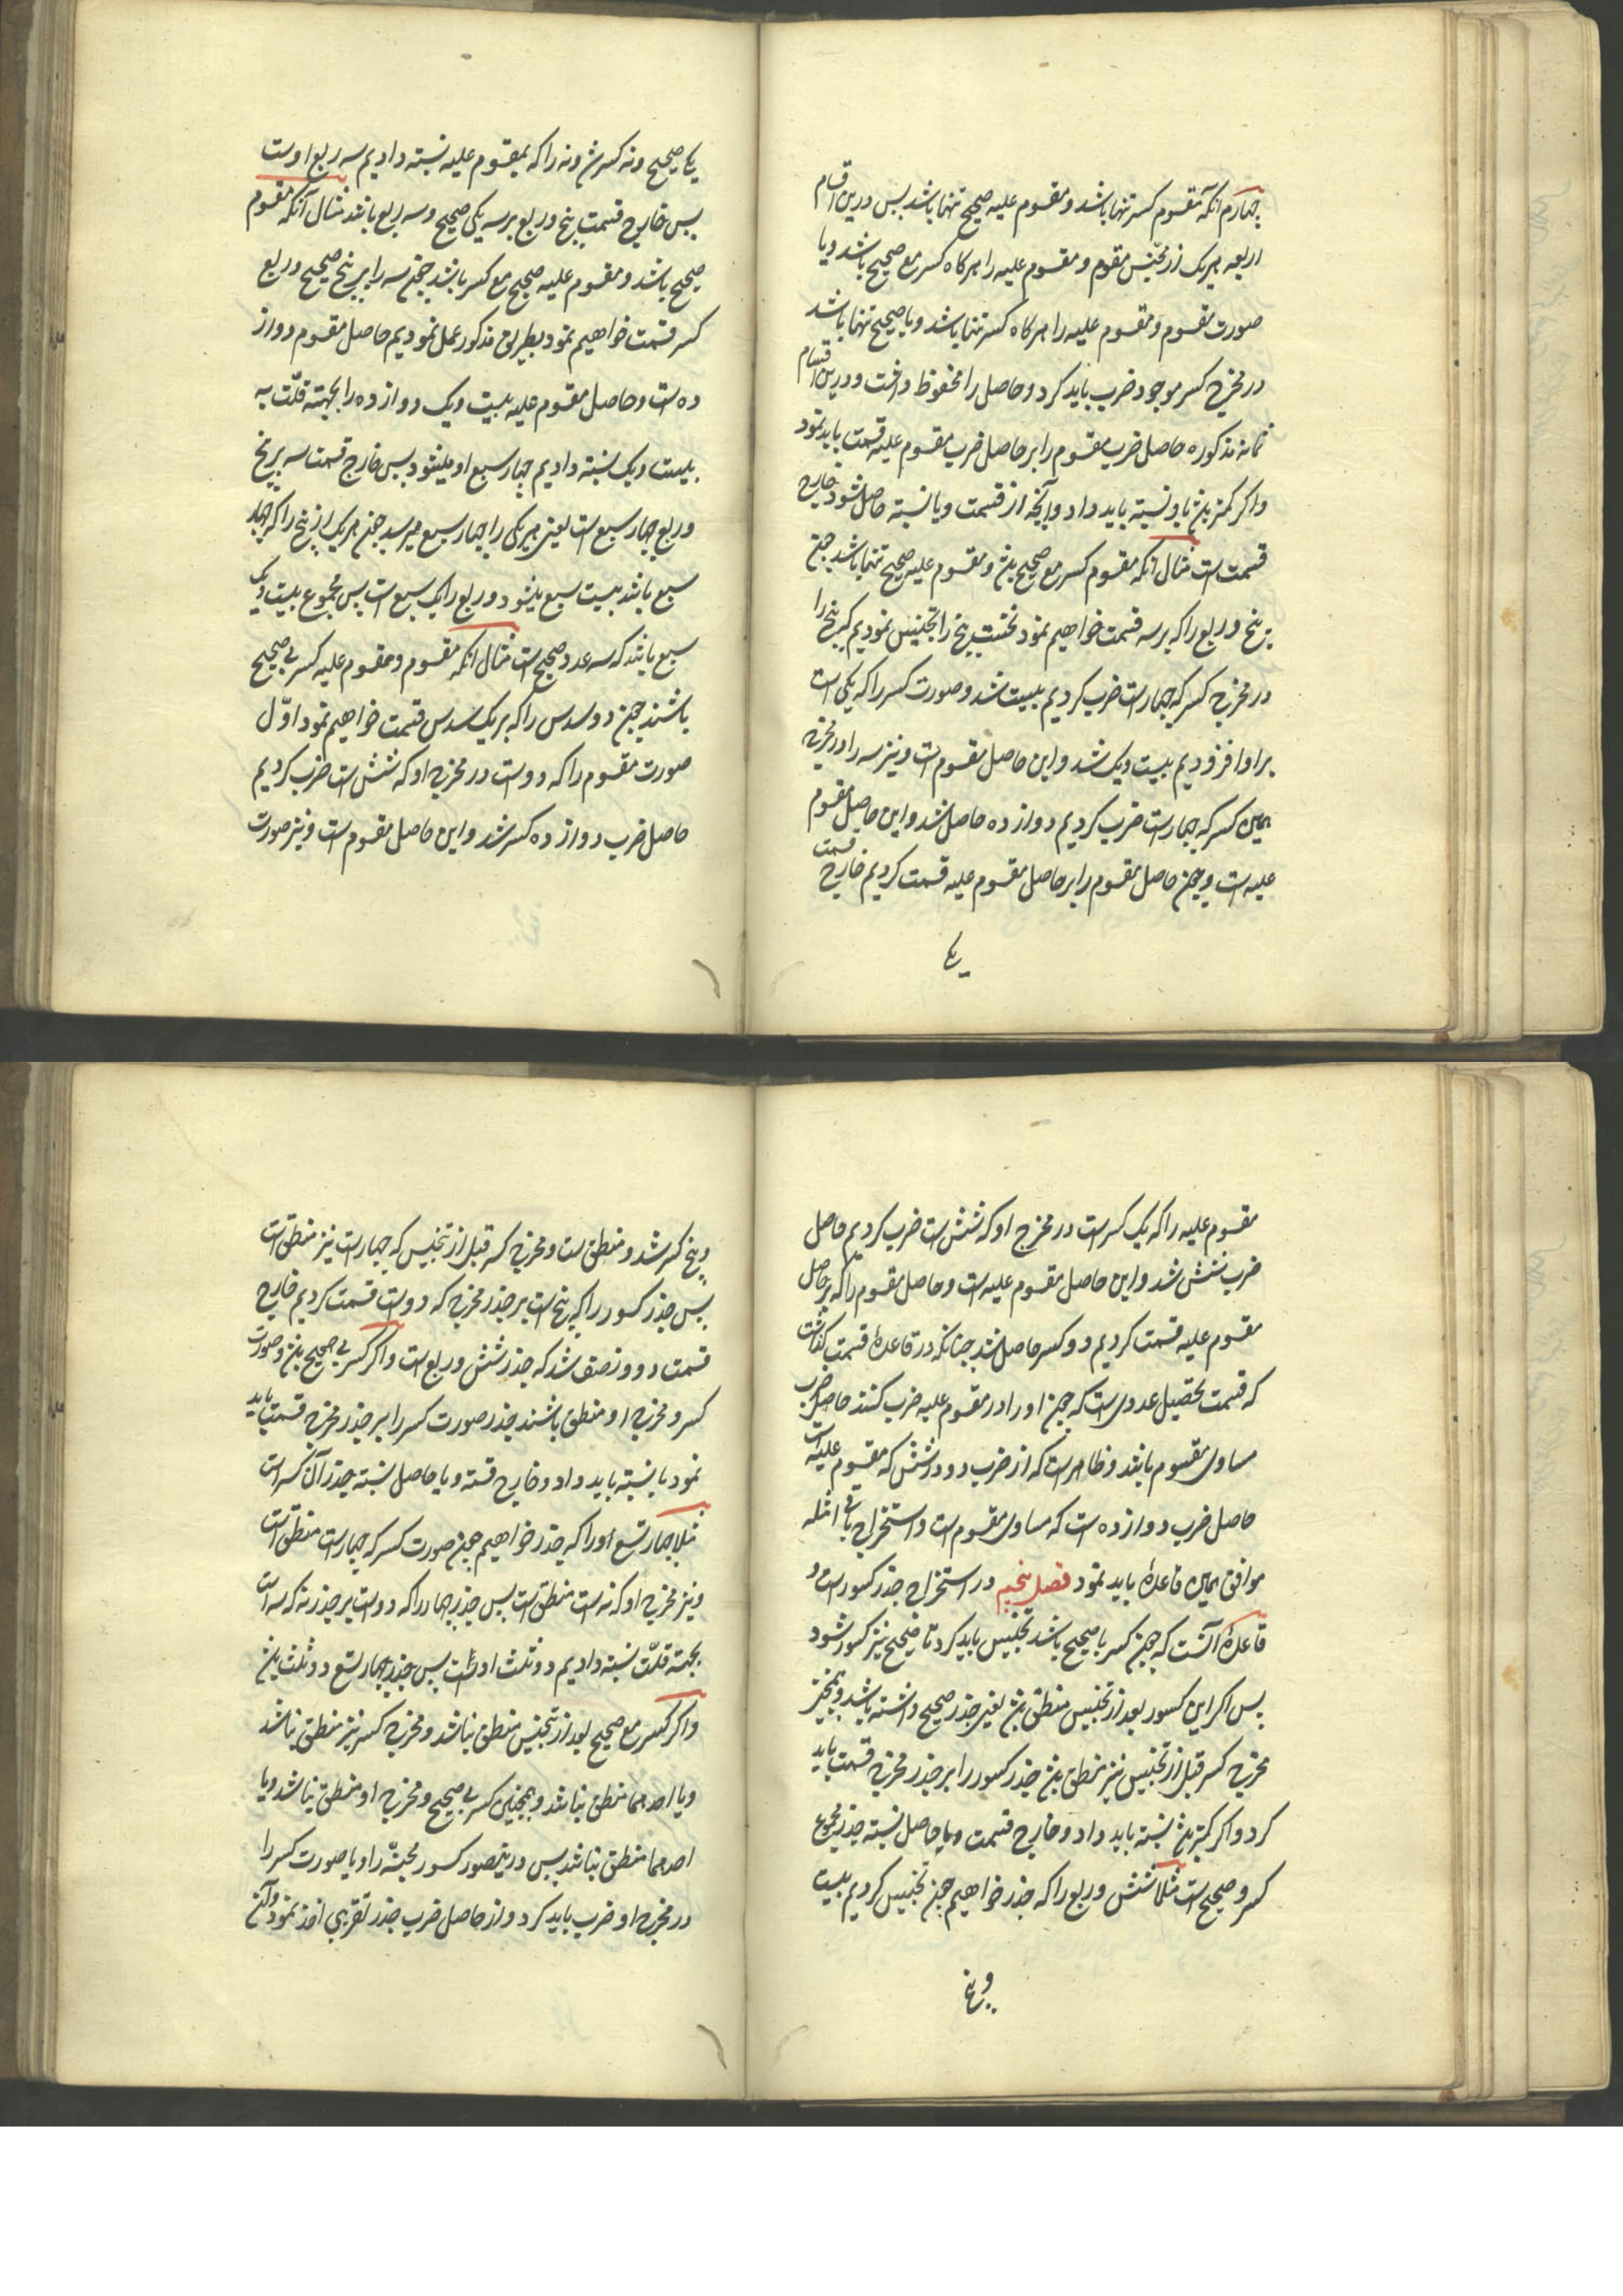 چهارم آنکه مقسوم کسر تنها باشد و مقسوم علیه صحیح تنها باشد پس درین اقسام
اربعه هریک از مجنس مقسوم و مقسوم علیه را هرکاه کسر مع صحیح باشد و یا
صورت مقسوم و مقسوم علیه را هرکاه کسر تنها باشد و یا صحیح تنها باشد
در مخرج کسر موجود ضرب باید کرد و حاصل را محفوظ داشت و درین اقسام
ثمانه مذکوره حاصل ضرب مقسوم را بر حاصل ضرب مقسوم علیه قسمت باید نمود
و اکر کمتر باشد باو نسبته باید داد و آنچه از قسمت و یا نسبته حاصل شود خارج
قسمت است مثال آنکه مقسوم کسر مع صحیح باشد و مقسوم علیه صحیح تنها باشد چنج
پنج و ربع را که بر سه قسمت خواهیم نمود نخست پنج را تجنیس نمودیم پنج را
در مخرج کسر که چهار است ضرب کردیم بیست شد و صورت کسر را که یکی است
بر او افزودیم بیست و یک شد و این حاصل مقسوم است و نیز سه را در مخرج
همین کسر که چهار است ضرب کردیم دوازده حاصل شد و این حاصل مقسوم
علیه است و چون حاصل مقسوم را بر حاصل مقسوم علیه قسمت کردیم خارج قسمت
یکی
یکی صحیح و نه کسر شد و نه را که بمقسوم علیه نسبته دادیم سه ربع اوست
پس خارج قسمت پنج و ربع بر سه یکی صحیح و سه ربع باشد مثال آنکه مقسوم
صحیح باشد و مقسوم علیه صحیح مع کسر باشد چنج سه را بر پنج صحیح و ربع
کسر قسمت خواهیم نمود بطریق مذکور عمل نمودیم حاصل مقسوم دواز
ده است و حاصل مقسوم علیه بیست و یک دوازده را بجهته قلّت به
بیست و یک نسبته دادیم چهار سبع او میشود پس خارج قسمت سه بر پنج
و ربع چهار سبع است یعنی هر یکی را چهار سبع میرسد چون هر یک از پنج را که چهار
سبع باشد بیست سبع میشود و ربع را یک سبع است پس مجموع بیست و یک
سبع باشد که سه عدد صحیح است مثال آنکه مقسوم و مقسوم علیه کسر بی صحیح
باشند چون دو سدس را که بر یک سدس قسمت خواهیم نمود اوّل
صورت مقسوم را که دو است در مخرج او که شش است ضرب کردیم
حاصل ضرب دوازده کسر شد و این حاصل مقسوم است و نیز صورت
مقسوم علیه را که یک کسر است در مخرج او که شش است ضرب کردیم حاصل
ضرب شش شد و این حاصل مقسوم علیه است و حاصل مقسوم را که بر حاصل
مقسوم علیه قسمت کردیم دو کسر حاصل شد چنانکه در قاعدهٔ قسمت کذشت
که قسمت تحصیل عددی است که چون او را در مقسوم علیه ضرب کنند حاصل ضرب
مساوی مقسوم باشد و ظاهر است که از ضرب دو در شش که مقسوم علیه است
حاصل ضرب دوازده است که مساوی مقسوم است و استخراج باقی امثله
موافق همین قاعدهٔ باید نمود فصل پنجم در استخراج جذر کسور است و
قاعدهٔ آنست که چون کسر با صحیح باشد تجنیس باید کرد تا صحیح نیز کسور شود
پس اکر این کسور بعد از تجنیس منطق باشد یعنی جذر صحیح داشته باشد و همچنین
مخرج کسر قبل از تجنیس نیز منطق باشد جذر کسور را بر جذر مخرج قسمت باید
کرد و اکر کمتر باشد نسبته باید داد و خارج قسمت و یا حاصل نسبته جذر مجموع
کسر و صحیح است مثلا شش و ربع را که جذر خواهیم چون تجنیس کردیم بیست
و پنج
و پنج کسر شد و منطق است و مخرج کسر قبل از تجنیس که چهار است نیز منطق است
پس جذر کسور را که پنج است بر جذر مخرج که دو است قسمت کردیم خارج
قسمت دو و نصف شد که جذر شش و ربع است و اکر کسر بی صحیح باشد و صورت
کسر و مخرج او منطق باشند جذر صورت کسر را بر جذر مخرج قسمت باید
نمود یا نسبته باید داد و خارج قسمة و یا حاصل نسبته جذر آن کسر است
مثلا چهار تسع او را که جذر خواهیم چون صورت کسر که چهار است منطق است
و نیز مخرج او که نه است منطق است پس جذر چهار را که دو است بر جذر نه که سه است
بجهته قلّت نسبته دادیم دو ثلث او است پس جذر چهار تسع دو ثلث باشد
و اکر کسر مع صحیح بعد از تجنیس منطق نباشد و مخرج کسر نیز منطق نباشد
و یا احدهما منطق نباشد و همچنین کسر بی صحیح و مخرج او منطق نباشد و یا
احدهما منطق نباشد پس درینصور کسور مجنسّه را و یا صورت کسر را
در مخرج او ضرب باید کرد و از حاصل ضرب جذر تقریبی اخذ نمود و آنچه